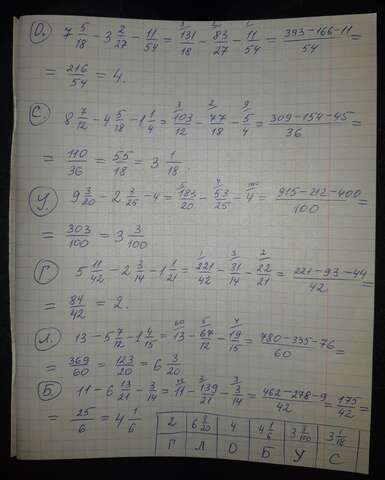 О. 7 5/18 − 3 2/27 − 11/54 = 131/18 − 83/27 − 11/54 = (393 − 166 − 11)/54 =
= 216/54 = 4.
С. 8 7/12 − 4 5/18 − 1 1/4 = 103/12 − 77/18 − 5/4 = (309 − 154 − 45)/36 =
= 110/36 = 55/18 = 3 1/18.
У. 9 3/20 − 2 3/25 − 4 = 183/20 − 53/25 − 4 = (915 − 212 − 400)/100 =
= 303/100 = 3 3/100
Г. 5 11/42 − 2 3/14 − 1 1/21 = 221/42 − 31/14 − 22/21 = (221 − 93 − 44)/42 =
= 84/42 = 2.
Л. 13 − 5 7/12 − 1 4/15 = 13 − 67/12 − 19/15 = (780 − 335 − 76)/60 =
= 369/60 = 123/20 = 6 3/20
Б. 11 − 6 13/21 − 3/14 = 11 − 139/21 − 3/14 = (462 − 278 − 9)/42 = 175/42 =
= 25/6 = 4 1/6
2 6 3/20 4 4 1/6 3 3/100 3 1/18
Г Л О Б У С